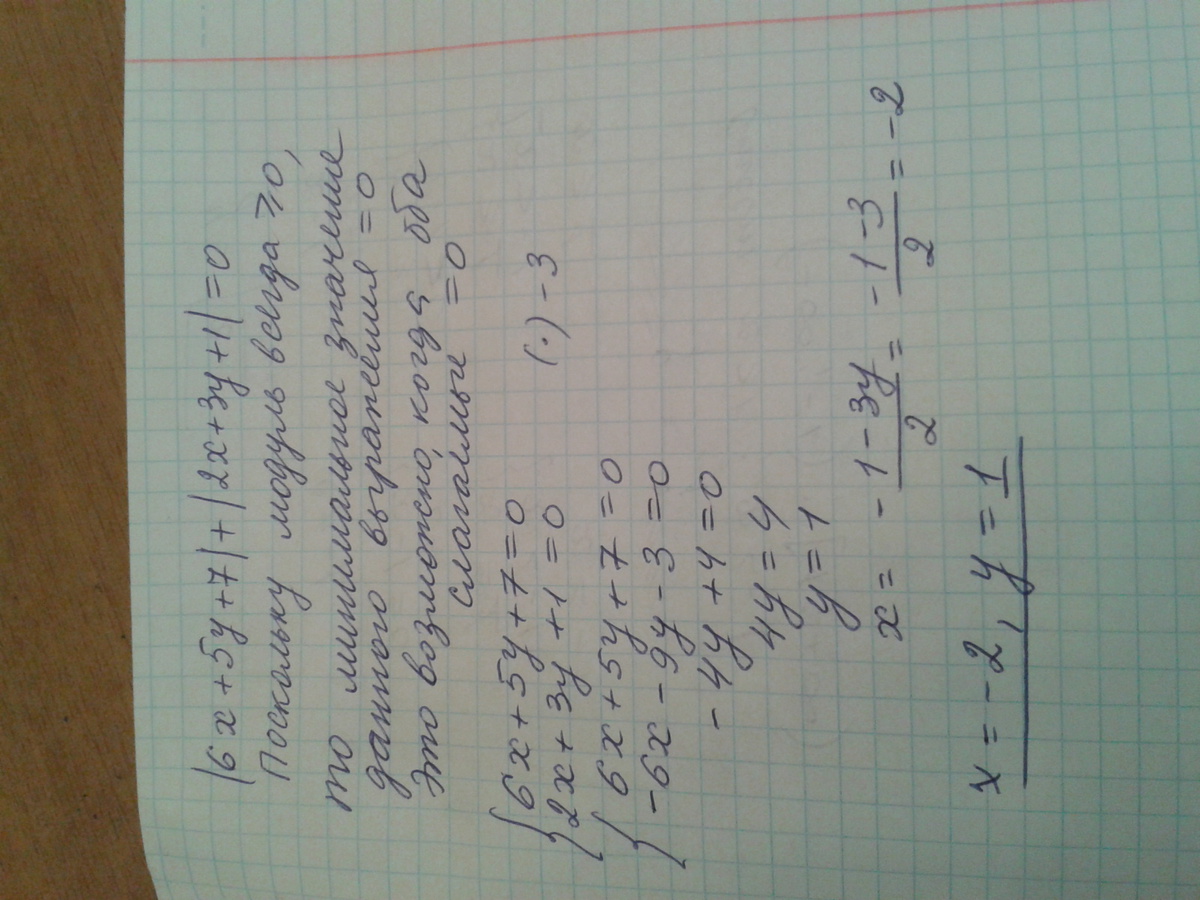 |6x+5y+7|+|2x+3y+1|=0
Поскольку модуль всегда ⩾0,
то минимальное значение
данного выражения =0
Это возможно, когда оба
слагаемые =0
{6x+5y+7=0
2x+3y+1=0 (·)-3
{6x+5y+7=0
-6x-9y-3=0
-4y+4=0
4y=4
y=1
x= -1-3y/2 = -1-3/2 = -2
x=-2, y=1